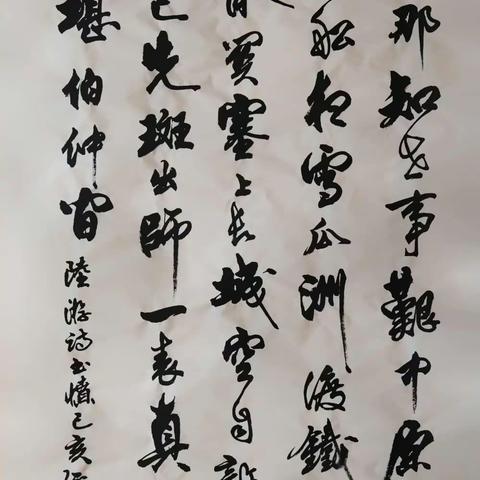 那知世事艱中原
船夜雪瓜洲渡鐵
關塞上長城空自許
已先斑出師一表真
堪伯仲間
陸游詩書憤己亥